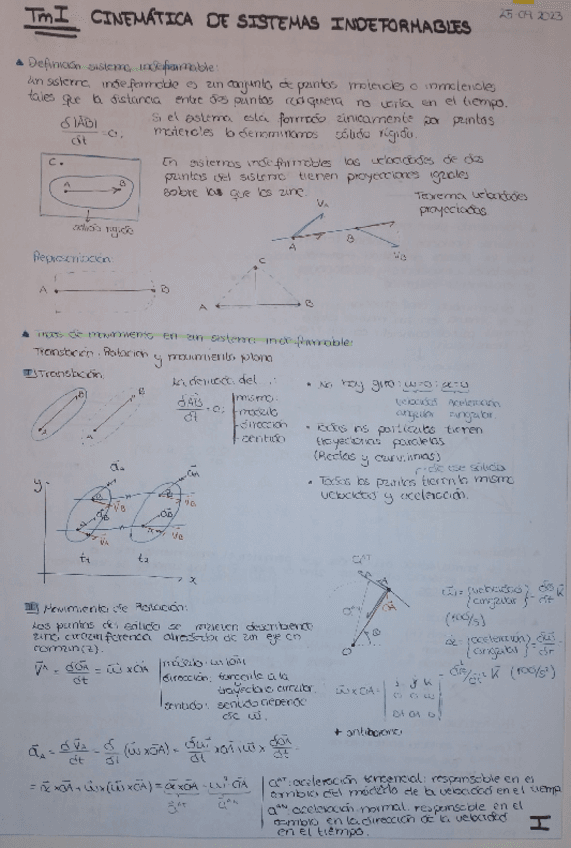 TmI CINEMÁTICA DE SISTEMAS INDEFORMABLES
25 09 2023
Definición sistema indeformable:
Un sistema indeformable es un conjunto de puntos materiales o inmateriales
tales que la distancia entre dos puntos cualquiera no varía en el tiempo.
d|AB|/dt = 0.
Si el sistema esta formado únicamente por puntos
materiales lo denominamos sólido rígido.
C.
A B
sólido rígido
En sistemas indeformables las velocidades de dos
puntos del sistema tienen proyecciones iguales
sobre la que los une.
Teorema velocidades
proyectadas
VA
A B
VB
Representación:
A B
C
A B
de movimiento en un sistema indeformable:
Translación, Rotación y movimiento plano
Translación:
A B
A B
La derivada del
dAB/dt = 0:
mismo:
modulo
dirección
sentido
No hay giro: w=0;
velocidad angular
aceleración angular
Todas las partículas tienen
trayectorias paralelas
(Rectas y curvilíneas)
de ese sólido
Todos los puntos tienen la misma
velocidad y aceleración.
y
t1 t2
x
Movimiento de Rotación:
Los puntos del sólido se mueven describiendo
una circunferencia alrededor de un eje en
común (z).
VA = dOA/dt = w x OA
módulo: w|OA|
dirección: tangente a la
trayectoria circular.
sentido: sentido depende
de w.
O
θ
A
w = {velocidad angular} = dθ/dt K
(rad/s)
α = {aceleración angular} = dw/dt
K (rad/s²)
w x OA =
+ antihorario
aA = dVA/dt = d/dt (w x OA) = dw/dt x OA + w x dOA/dt
= α x OA + w x (w x OA) = α x OA - w² OA
aAT aAN
aAT: aceleración tangencial: responsable en el
cambio del módulo de la velocidad en el tiempo
aAN aceleración normal: responsable en el
cambio en la dirección de la velocidad
en el tiempo.
I